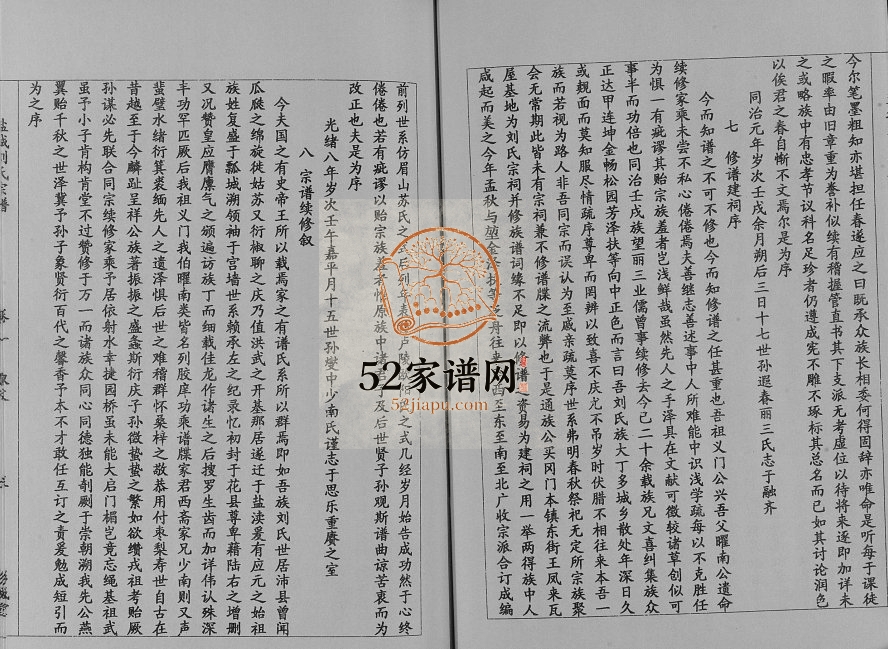 今尔笔墨粗知亦堪担任春遂应之曰既承众族长相委何得固辞亦唯命是听每于课徒
之暇率由旧章重为誊补似续有稽握管直书其下支派无考虚位以待将来逐即加详未
之或略族中有忠孝节议科名足珍者仍遵成宪不雕不琢标其总名而已如其讨论润色
以俟君之春自惭不文焉尔是为序
同治元年岁次壬戌余月朔后三日十七世孙遐春丽三氏志于融齐
七 修谱建祠序
今而知谱之不可不修也今而知修谱之任甚重也吾祖义门公兴吾父曜南公遗命
续修家乘未尝不私心倦倦焉夫善继志善述事中人所难能中识浅学疏每以不克胜任
为惧一有疵谬其贻宗族羞者岂浅鲜哉虽然先人之手泽具在文献可微较诸草创似可
事半而功倍也同治壬戌族望丽三业儒曾事续修去今已二十余载族兄文喜纠集族众
正达甲连坤金畅松园芳泽扶等向中正色而言曰吾刘氏族大丁多城乡散处年深日久
或觌面而莫知服尽情疏序尊卑而罔辨以致喜不庆凶不吊岁时伏腊不相往来本吾一
族而若视为路人非吾同宗而误认为至戚亲疏莫序世系弗明春秋祭祀无定所宗族聚
会无常期此皆未有宗祠兼不修谱牒之流弊也于是通族公买冈门本镇东街王凤来瓦
屋基地为刘氏宗祠并修族谱词缘不足即以修谱之资易为建祠之用一举两得族中人
咸起而美之今年孟秋与堃金
舟往来
西至东至南至北广收宗派合订成编
前列世系仿眉山苏氏之
后列年表
卢陵
之式几经岁月始告成功然于心终
倦倦也若有疵谬以贻宗族羞者惟原族中诸
子及后世贤子孙观斯谱曲谅苦衷而为
改正也夫是为序
光绪八年岁次壬午嘉平月十五世孙燮中少南氏谨志于思乐重赓之室
八 宗谱续修叙
今夫国之有史帝王所以载焉家之有谱氏系所以群焉即如吾族刘氏世居沛县曾闻
瓜瓞之绵旋徙姑苏又衍椒聊之庆乃值洪武之开基那居遂迁于盐渎爰有应元之始祖
族姓复盛于瓢城朔领袖于宫墙世系赖承左之纪录忆初封于花县尊卑藉陆右之增删
又况赞皇应膺麇气之颁遍访族丁而细载佳龙作诸生之后搜罗生齿而加详伟认殊深
丰功罕匹厥后我祖义门我伯曜南类皆名列胶庠功乘谱牒家君西斋家兄少南则又声
蜚璧水绪衍箕裘缅先人之遗泽惧后世之难稽群怀桑梓之敬恭用付枣梨寿世自古在
昔越至于今麟趾呈祥公族著振振之盛螽斯衍庆子孙微蛰蛰之繁如欲缵戎祖考贻厥
孙谋必先联合同宗续修家乘予居依射水幸捷园桥虽未能大启门楣岂竟忘绳基祖武
虽予小子肯构肯堂不过赞修于万一而诸族众同心同德独能剞劂于崇朝溯我先公燕
翼贻千秋之世泽冀予孙子象贤衍百代之馨香予本不才敢任互订之责爰勉成短引而
为之序
盐城刘氏宗谱
卷一
彭城堂
52家谱网
52jiapu.com